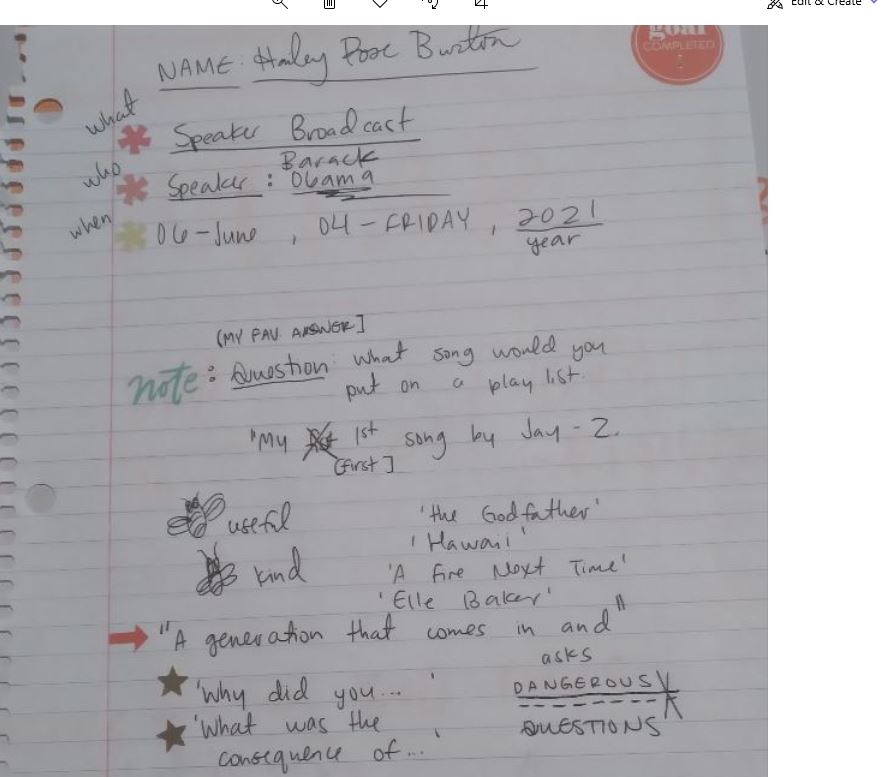 Edit & Create
goal
COMPLETED
NAME: Hailey Rose Burton
what
Speaker Broadcast
who
Barack
Speaker : Obama
when
06-June , 04-FRIDAY , 2021
year
(MY FAV ANSWER]
note: Question: What song would you
put on a play list.
"My 1st song by Jay-Z.
(first]
useful
'the Godfather'
'Hawaii'
kind
'A Fire Next Time'
'Elle Baker'
"A generation that comes in and"
asks
'Why did you... '
DANGEROUS
'What was the
QUESTIONS
consequence of...'